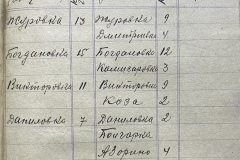 Журовка 13 Журовка 9
Дмитриевка 4
Богдановка 15 Богдановка 12
Комисаровка 3
Викторовка 11 Викторовка 9
Коза 2
Даниловка 7 Даниловка 2
Бочарка
Азорино 4